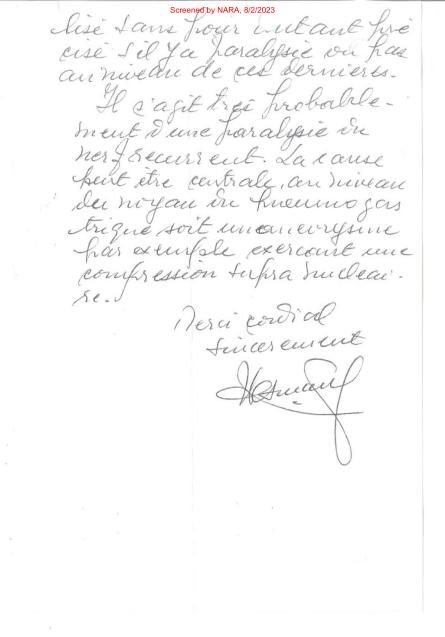 Screened by NARA, 8/2/2023
lisé sans pour autant pré
cisé s'il y a paralysie ou pas
au niveau de ces dernières.
Il s'agit très probable-
ment d'une paralysie du
nerf recurrent. La cause
peut être centrale, au niveau
du noyau du pneumogas
trique soit un anevrysme
par exemple exercant une
compression supra nucleai-
re.
Merci cordial
sincerement